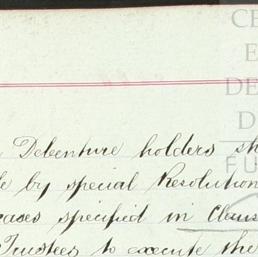 CE
E
DE
D
Debenture holders sh
FU
by special Resolution
cases specified in Claus
Trustees to execute the